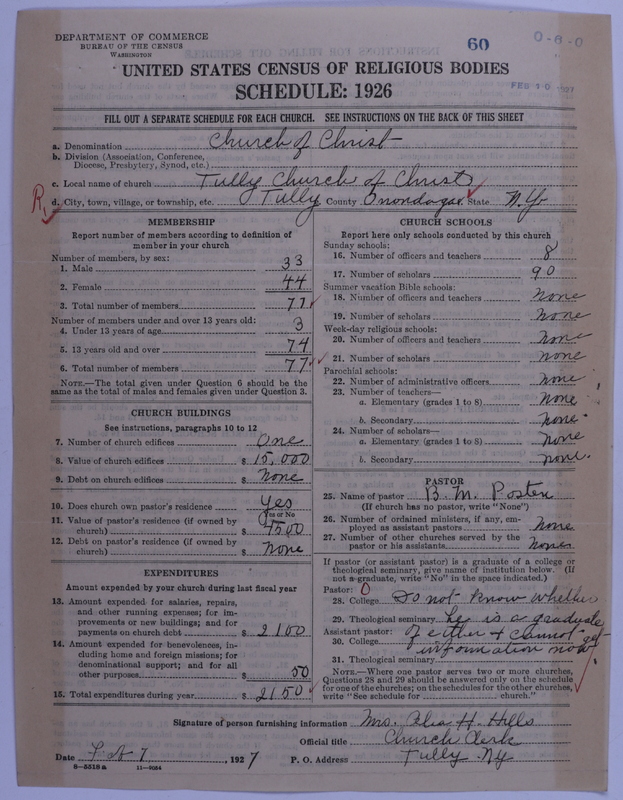 DEPARTMENT OF COMMERCE
BUREAU OF THE CENSUS
WASHINGTON
60
0-6-0
FEB 10 1927
UNITED STATES CENSUS OF RELIGIOUS BODIES
SCHEDULE: 1926
FILL OUT A SEPARATE SCHEDULE FOR EACH CHURCH. SEE INSTRUCTIONS ON THE BACK OF THIS SHEET
a. Denomination Church of Christ
b. Division (Association, Conference,
Diocese, Presbytery, Synod, etc.)
c. Local name of church Tully Church of Christ
R. d. City, town, village, or township, etc. Tully County Onondaga State N.Y.
MEMBERSHIP
Report number of members according to definition of
member in your church
Number of members, by sex:
1. Male 33
2. Female 44
3. Total number of members 77
Number of members under and over 13 years old:
4. Under 13 years of age 3
5. 13 years old and over 74
6. Total number of members 77
NOTE.—The total given under Question 6 should be the
same as the total of males and females given under Question 3.
CHURCH BUILDINGS
See instructions, paragraphs 10 to 12
7. Number of church edifices One
8. Value of church edifices $ 15,000
9. Debt on church edifices $ None
10. Does church own pastor's residence Yes
Yes or No
11. Value of pastor's residence (if owned by
church) $ 4500
12. Debt on pastor's residence (if owned by
church) $ None
EXPENDITURES
Amount expended by your church during last fiscal year
13. Amount expended for salaries, repairs,
and other running expenses; for im-
provements or new buildings; and for
payments on church debt $ 2100
14. Amount expended for benevolences, in-
cluding home and foreign missions; for
denominational support; and for all
other purposes $ 50
15. Total expenditures during year $ 2150
CHURCH SCHOOLS
Report here only schools conducted by this church
Sunday schools:
16. Number of officers and teachers 8
17. Number of scholars 90
Summer vacation Bible schools:
18. Number of officers and teachers None
19. Number of scholars None
Week-day religious schools:
20. Number of officers and teachers None
21. Number of scholars None
Parochial schools:
22. Number of administrative officers None
23. Number of teachers—
a. Elementary (grades 1 to 8) None
b. Secondary None
24. Number of scholars—
a. Elementary (grades 1 to 8) None
b. Secondary None
PASTOR
25. Name of pastor B. M. Posten
(If church has no pastor, write "None")
26. Number of ordained ministers, if any, em-
ployed as assistant pastors None
27. Number of other churches served by the
pastor or his assistants None
If pastor (or assistant pastor) is a graduate of a college or
theological seminary, give name of institution below. (If
not a graduate, write "No" in the space indicated.)
Pastor: 0
28. College Do not know whether
29. Theological seminary he is a graduate
Assistant pastor: of either & cannot get
30. College information now
31. Theological seminary
NOTE.—Where one pastor serves two or more churches,
Questions 28 and 29 should be answered only on the schedule
for one of the churches; on the schedules for the other churches,
write "See schedule for church."
Signature of person furnishing information Mrs. H. Hills
Official title Church Clerk
Date 7, 1927 P. O. Address Tully N.Y.
8-5518a 11-9084